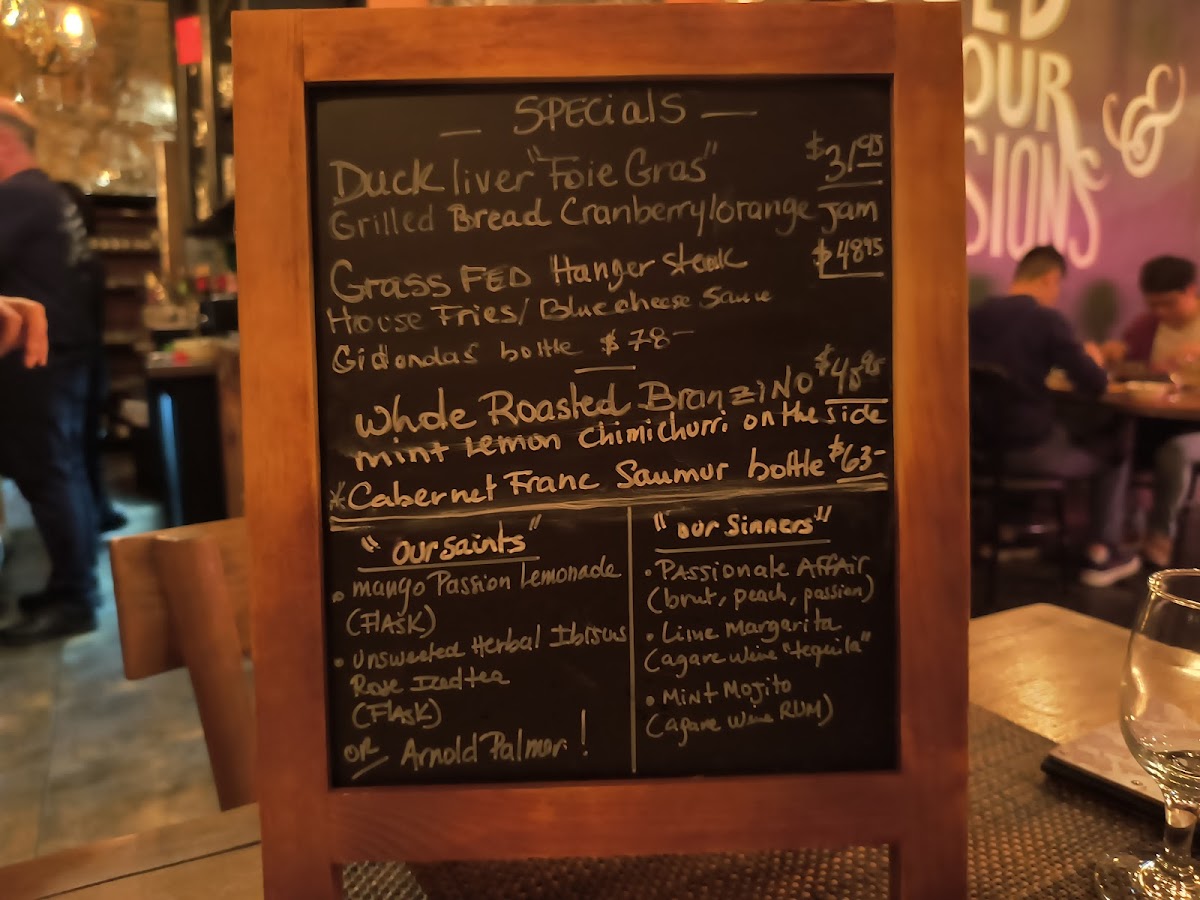 — SPECIALS —
Duck liver "Foie Gras" $31.95
Grilled Bread Cranberry/orange jam
Grass FED Hanger steak $48.95
House Fries/Bluecheese Sauce
Gidondas bottle $78-
Whole Roasted BranziNo $45.95
mint Lemon chimichurri on the side
*Cabernet Franc Saumur bottle $63-
"our saints"
• mango Passion Lemonade
(FlAsK)
• Unsweeted Herbal Ibiscus
Rose Icedtea
(FlAsK)
OR Arnold Palmer!
"our Sinners"
• PAssionate AFFAir
(brut, peach, passion)
• Lime Margarita
(agave wine "tequila"
• Mint Mojito
(agave wine RUM)
ED
OUR
SIONS
&